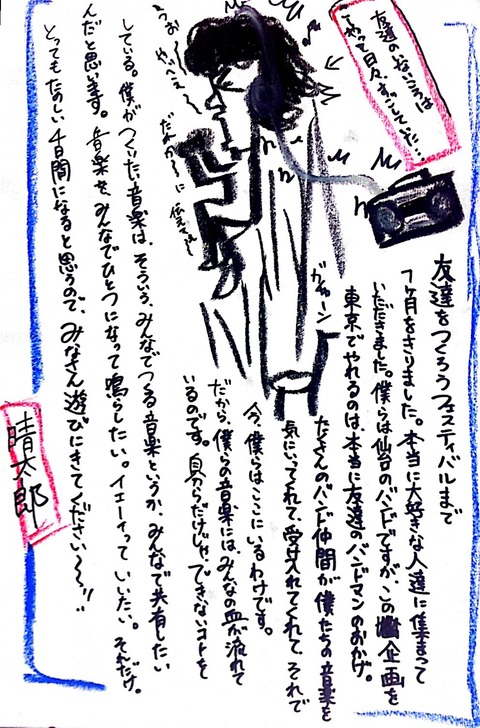 友達のいないころは
こうやって日々、すごしてた…
うおー
やべぇ
だれかーに
ガチャーン
友達をつくろうフェスティバルまで
1ヶ月をきりました。本当に大好きな人達に集まって
いただきました。僕らは仙台のバンドですが、この企画を
東京でやれるのは、本当に友達のバンドマンのおかげ。
たくさんのバンド仲間が僕たちの音楽を
気にいってくれて、受け入れてくれて、それで
今、僕らはここにいるわけです。
だから、僕らの音楽には、みんなの血が流れて
いるのです。自分らだけじゃ、できないコトを
している。僕がつくりたい音楽は、そういう、みんなでつくる音楽というか、みんなで共有したい
んだと思います。音楽を、みんなでひとつになって鳴らしたい。イェーイって いいたい。それだけ。
とってもたのしい4日間になると思うので、みなさん遊びにきてください〜〜!!
晴太郎